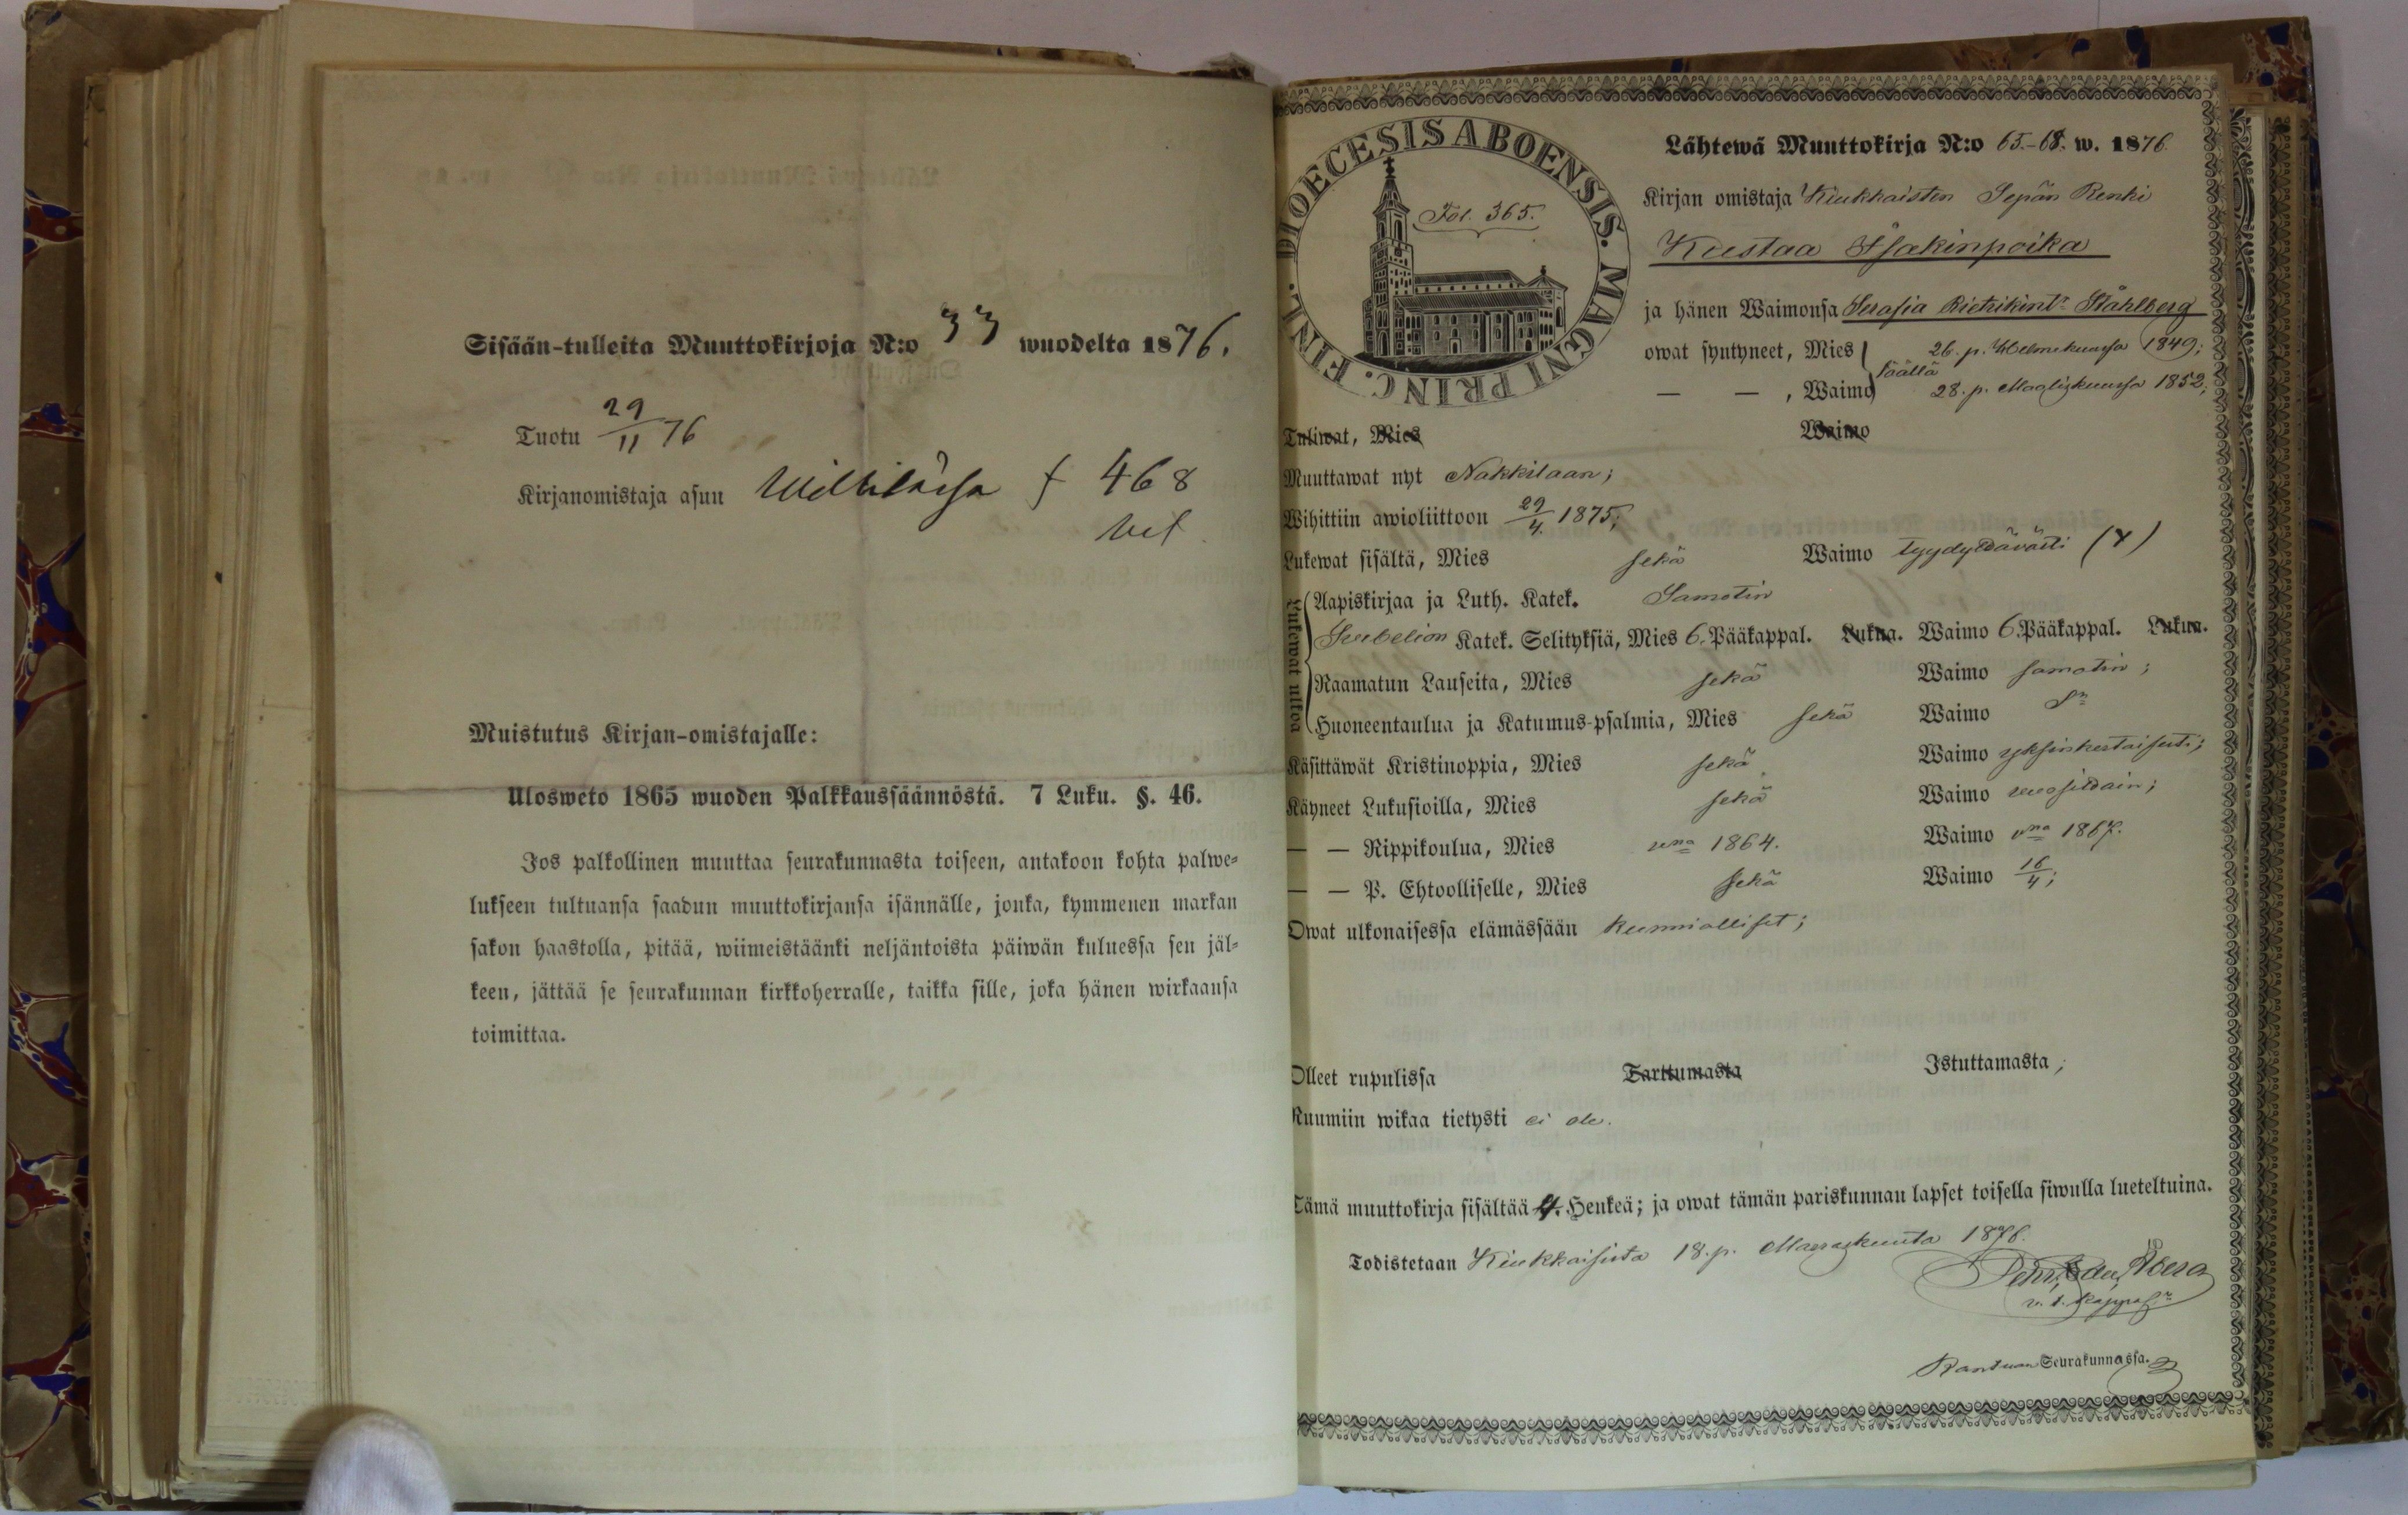 Sisään-tulleita Muuttokirjoja N:o 33 wuodelta 1876.
Tuotu 29/11 76
Kirjanomistaja asuu Willilässä f 468
Muistutus Kirjan-omistajalle:
Ulosweto 1865 wuoden Palkkaussäännöstä. 7 Luku. §. 46.
Jos palkollinen muuttaa seurakunnasta toiseen, antakoon kohta palwe=
lukseen tultuansa saadun muuttokirjansa isännälle, jonka, kymmenen markan
sakon haastolla, pitää, wiimeistäänki neljäntoista päiwän kuluessa sen jäl=
keen, jättää se seurakunnan kirkkoherralle, taikka sille, joka hänen wirkaansa
toimittaa.
DIOECESIS ABOENSIS. MAGNI PRINC. FINL.
Fol. 365.
Lähtewä Muuttokirja N:o 65.-68. w. 1876.
Kirjan omistaja Kiukkaisten Sepän Renki
Kustaa Isakinpoika
ja hänen Waimonsa Serafia Rietrikint. Ståhlberg
owat syntyneet, Mies 26. p. Helmikuussa 1849;
täällä
— — , Waimo 28. p. Maaliskuussa 1852;
Tuliwat, Mies Waimo
Muuttawat nyt Nakkilaan;
Wihittiin awioliittoon 29/4. 1875;
Lukewat sisältä, Mies sekä Waimo tyydyttävästi (Y)
Lukewat ulkoa
Aapiskirjaa ja Luth. Katek. Samotin
Katek. Selityksiä, Mies 6. Pääkappal. Lukua. Waimo 6. Pääkappal. Lukua.
Raamatun Lauseita, Mies sekä Waimo samotin;
Huoneentaulua ja Katumus-psalmia, Mies sekä Waimo Sn
Käsittäwät Kristinoppia, Mies sekä Waimo yksinkertaisesti;
Käyneet Lukusioilla, Mies sekä Waimo vuosittain;
— — Rippikoulua, Mies vna 1864. Waimo vna 1867.
— — P. Ehtoolliselle, Mies sekä Waimo 16/4;
Owat ulkonaisessa elämässään kunnialliset;
Olleet rupulissa Tarttumasta Istuttamasta;
Ruumiin wikaa tietysti ei ole.
Tämä muuttokirja sisältää 4. Henkeä; ja owat tämän pariskunnan lapset toisella siwulla lueteltuina.
Todistetaan Kiukkaisista 18. p. Marraskuuta 1876.
v. t.
Seurakunnassa.